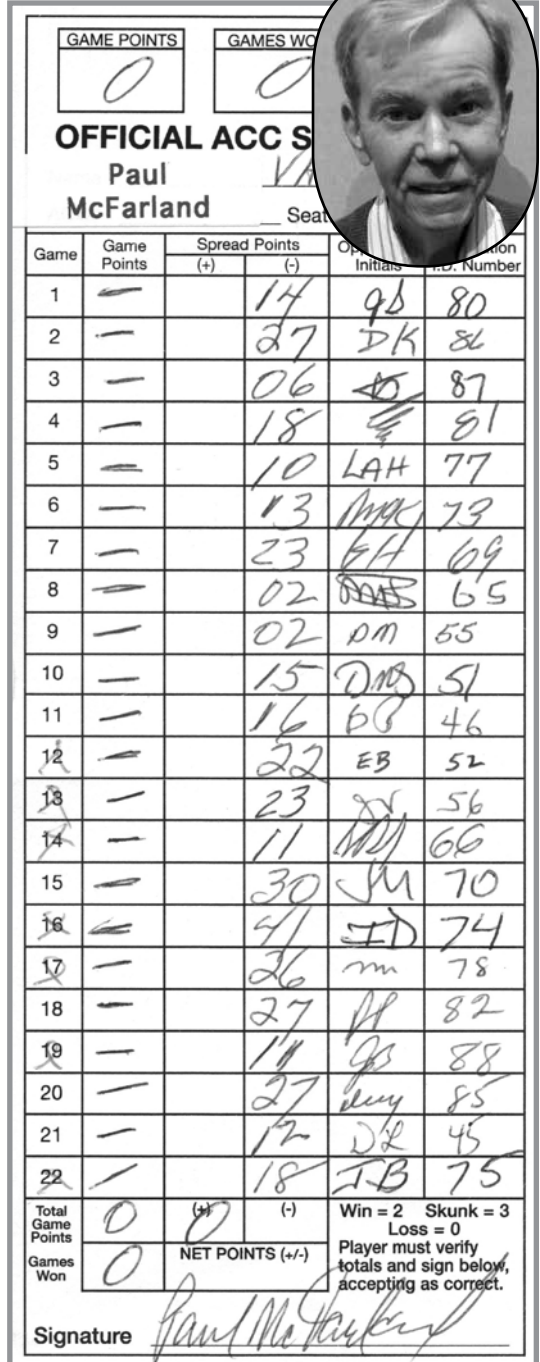 GAME POINTS GAMES WO
0 0
OFFICIAL ACC S
Paul VA
McFarland Seat
Game Game Points Spread Points (+) (-) Initials I.D. Number
1 — 14 gb 80
2 — 27 DK 86
3 — 06 87
4 — 18 81
5 — 10 LAH 77
6 — 13 73
7 — 23 EH 69
8 — 02 65
9 — 02 DM 55
10 — 15 51
11 — 16 46
12 — 22 EB 52
13 — 23 56
14 — 11 66
15 — 30 JM 70
16 — 41 ID 74
17 — 26 mm 78
18 — 27 82
19 — 88
20 — 27 85
21 — 12 DL 45
22 — 18 IB 75
Total Game Points 0 (+) 0 (-) Win = 2 Skunk = 3
Loss = 0
Games Won 0 NET POINTS (+/-) Player must verify
totals and sign below,
accepting as correct.
Signature Paul McFarland